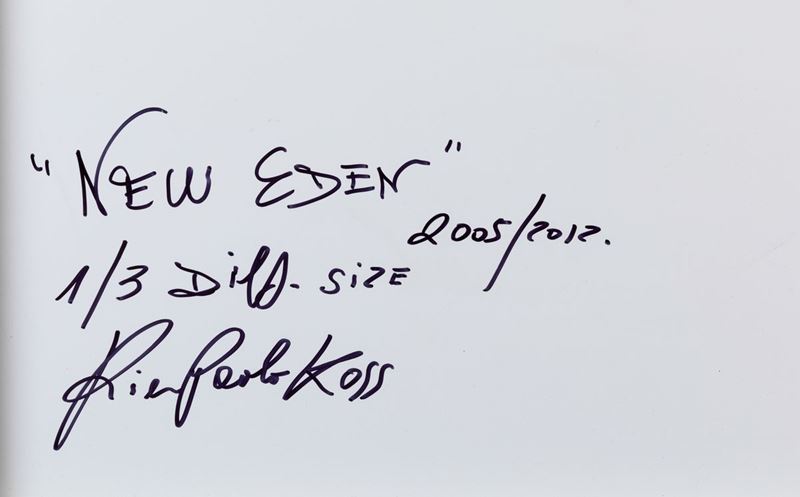 "NEW EDEN"
2005/2012.
1/3 Diff. SiZE
Paolo Koss